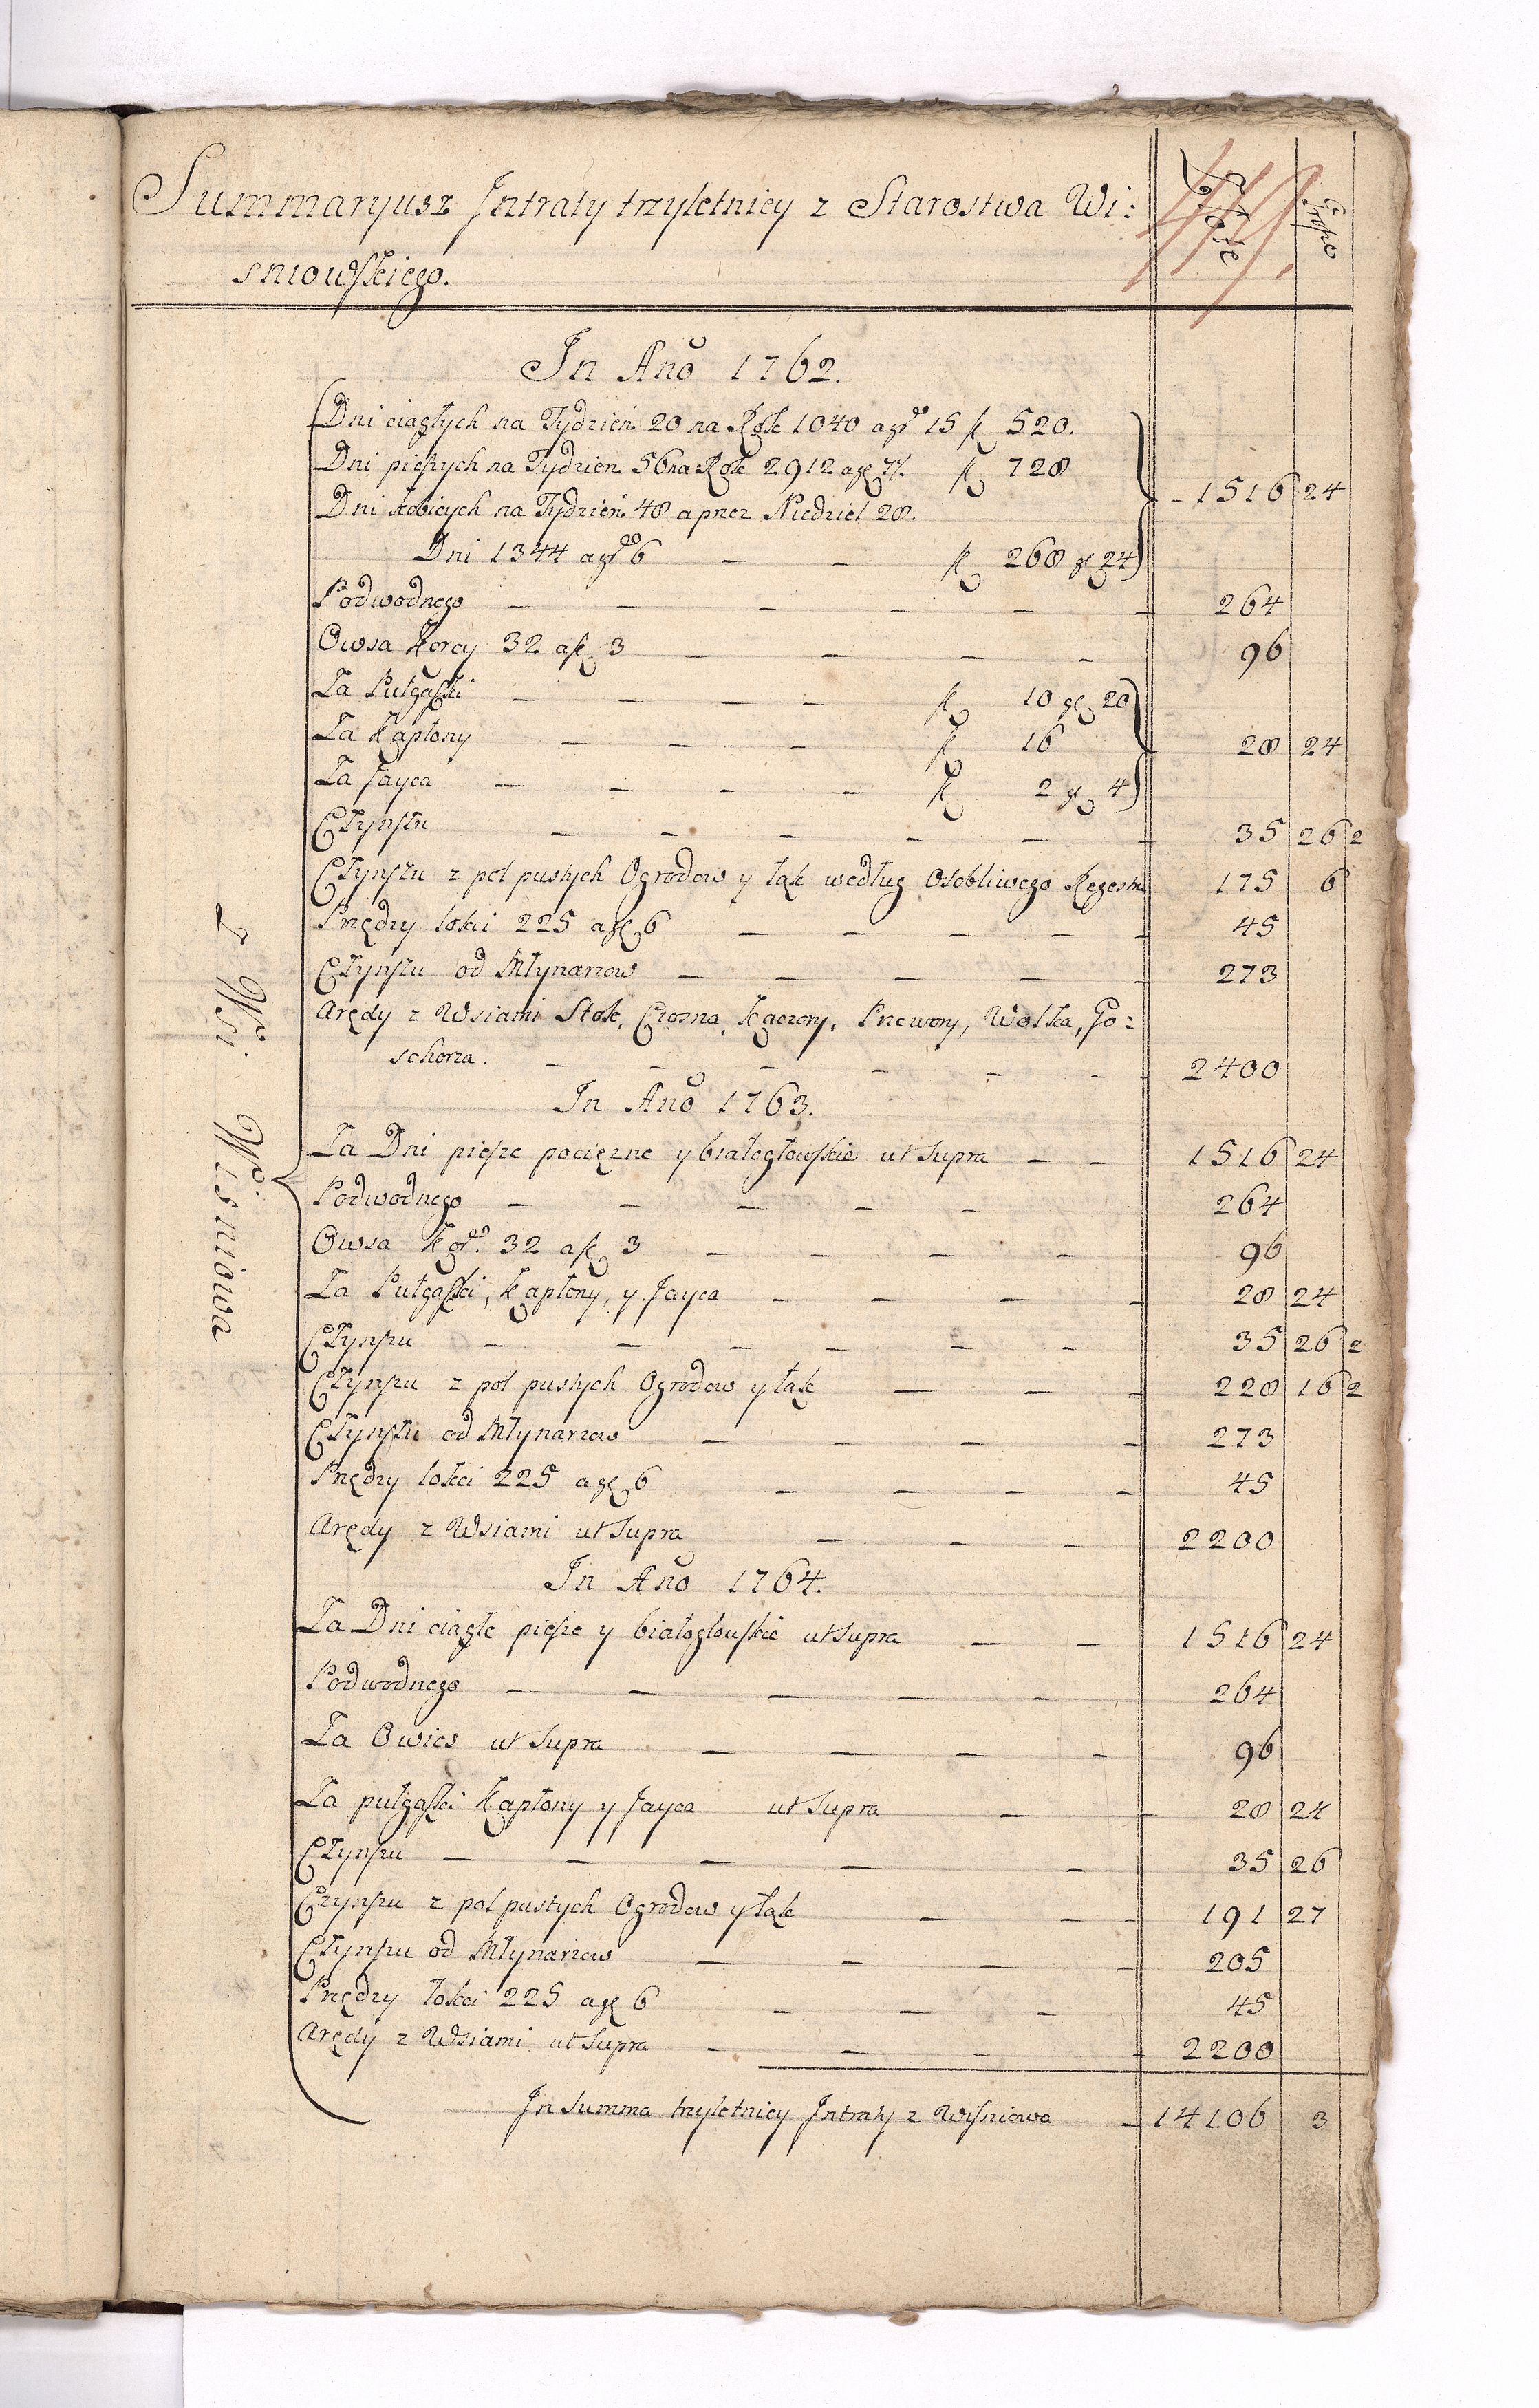 Summaryusz Jntraty trzyletniey z Starostwa Wi:
sniowskiego.
Złote
Grosze
449.
Jn Año 1762.
Dni ciągłych na Tydzień 20 na Rok 1040 a grd 15 fl 520.
Dni pieszych na Tydzień 56 na Rok 2912 a gr 7½ fl 728
Dni kobicych na Tydzień 48 a przez Niedziel 28.
1516 24
Dni 1344 a grd 6 fl 268 gr 24
Podwodnego 264
Owsa Korcy 32 a fl 3 96
Za Pułgąski fl 10 gr 20
Za Kapłony fl 16
28 24
Za Jayca fl 2 gr 4
Czynszu 35 26 2
Czynszu z pol pustych Ogrodow y łąk według Osobliwego Regestru 175 6
Przędzy łokci 225 a gr 6 45
Czynszu od Młynarzow 273
Arędy z Wsiami Stok, Czosna, Kaczory, Przewory, Wolka, Go:
schorza. 2400
Jn Año 1763.
Za Dni piesze pociężne y białogłowskie ut supra 1516 24
Podwodnego 264
Owsa Kor. 32 a fl 3 96
Za Pułgąski, Kapłony, y Jayca 28 24
Czynszu 35 26 2
Czynszu z pol pustych Ogrodow y łąk 228 16 2
Czynszu od Młynarzow 273
Przędzy łokci 225 a gr 6 45
Arędy z Wsiami ut supra 2200
Jn Año 1764.
Za Dni ciągłe piesze y białogłowskie ut supra 1516 24
Podwodnego 264
Za Owies ut supra 96
Za pułgąski Kapłony y Jayca ut supra 28 24
Czynszu 35 26
Czynszu z pol pustych Ogrodow y łąk 191 27
Czynszu od Młynarzow 205
Przędzy łokci 225 a gr 6 45
Arędy z Wsiami ut supra 2200
Jn summa trzyletniey Jntraty z Wiśniowa 14106 3
Z Wsi Wisniowa